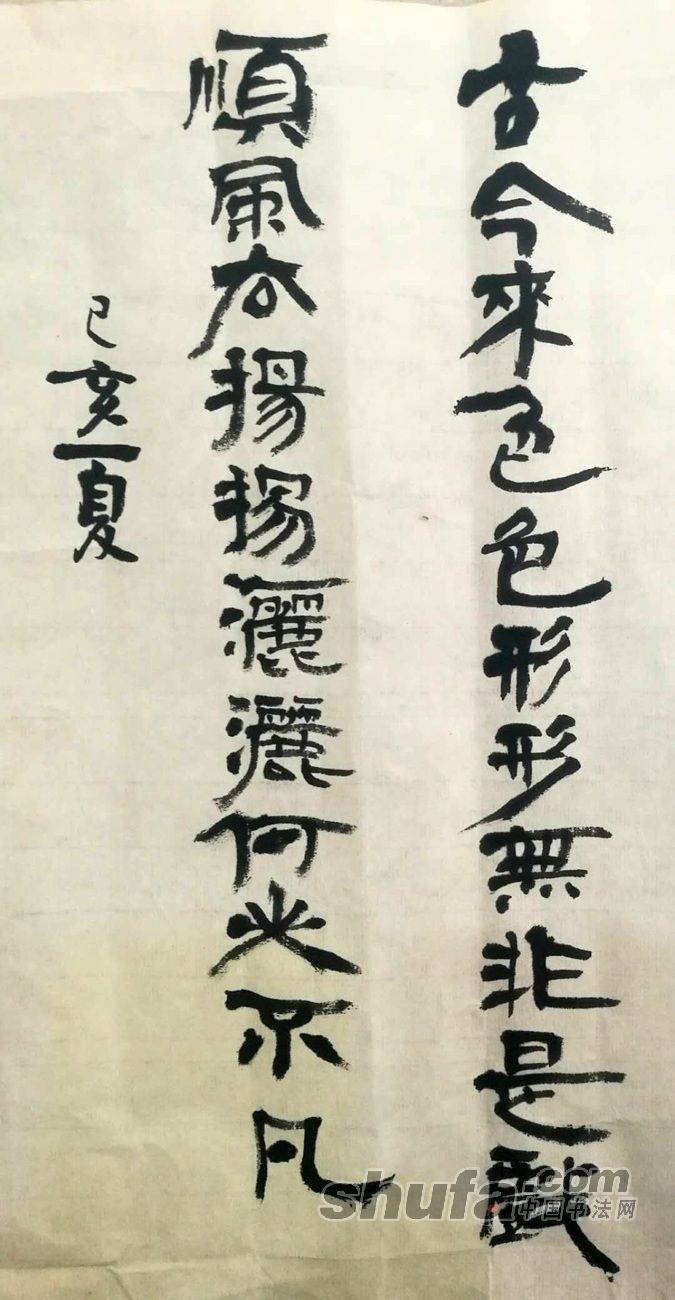 古今來色色形形無非是戲
順風去揚揚灑灑何必不凡
己亥夏
shufa.com
中国书法网